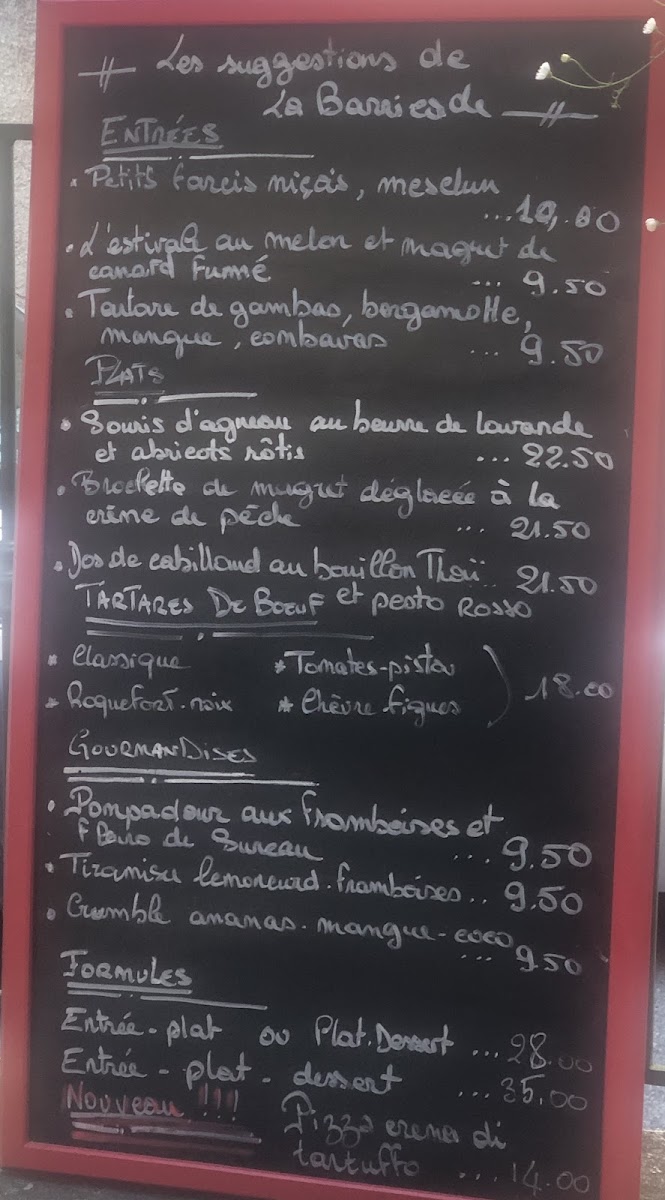 Les suggestions de
La Barricade
ENTRÉES
• Petits farcis niçois, mesclun
...10,00
• L'estivale au melon et magret de
canard Fumé ... 9.50
• Tartare de gambas, bergamotte,
mangue, combavas ... 9.50
PLATS
• Souris d'agneau au beurre de lavande
et abricots rôtis ... 22.50
• Brochette de magret déglacée à la
crème de pêche ... 21.50
• Dos de cabillaud au bouillon Thaï .. 21.50
et pesto ROSSO
TARTARES DE BOEUF
* Classique * Tomates-pistou
* Roquefort-noix * Chèvre figues
18.00
GOURMANDISES
• Pompadour aux framboises et
fleurs de Sureau ... 9.50
• Tiramisu lemoncurd.framboises .. 9.50
• Crumble ananas-mangue-coco
... 9.50
FORMULES
Entrée-plat ou Plat.Dessert ...28.00
Entrée - plat - dessert ...35.00
NOUVEAU !!! Pizza crema di
tartuffo ...14.00